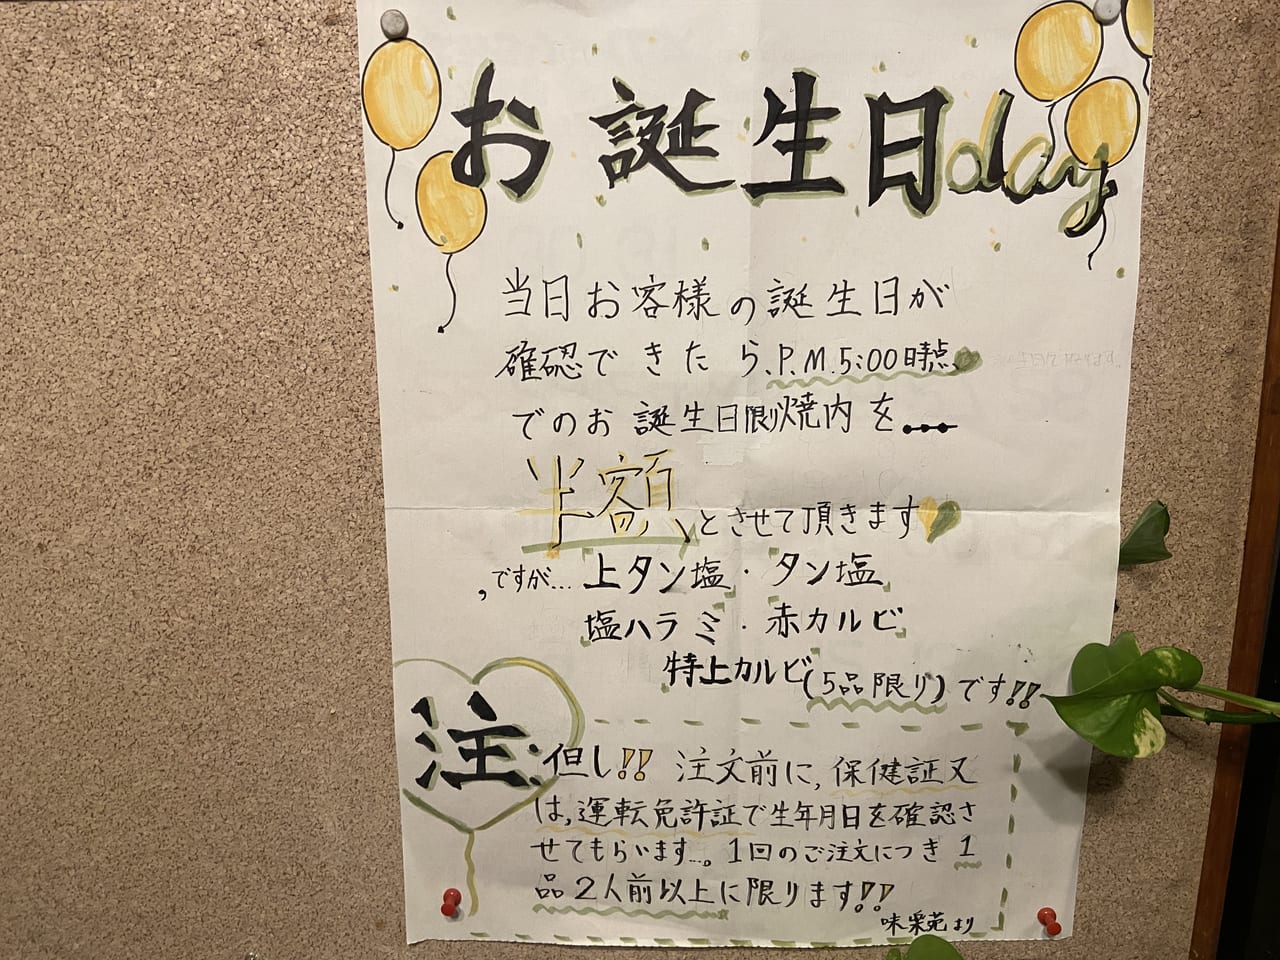 お誕生日day
当日お客様の誕生日が
確認できたら、P.M.5:00時点
でのお誕生日限り焼肉を...
半額とさせて頂きます
,ですが...上タン塩・タン塩
塩ハラミ・赤カルビ
特上カルビ(5品限り)です!!
注:但し!!注文前に,保健証又
は,運転免許証で生年月日を確認さ
せてもらいます...。1回のご注文につき1
品2人前以上に限ります!!
味楽苑より